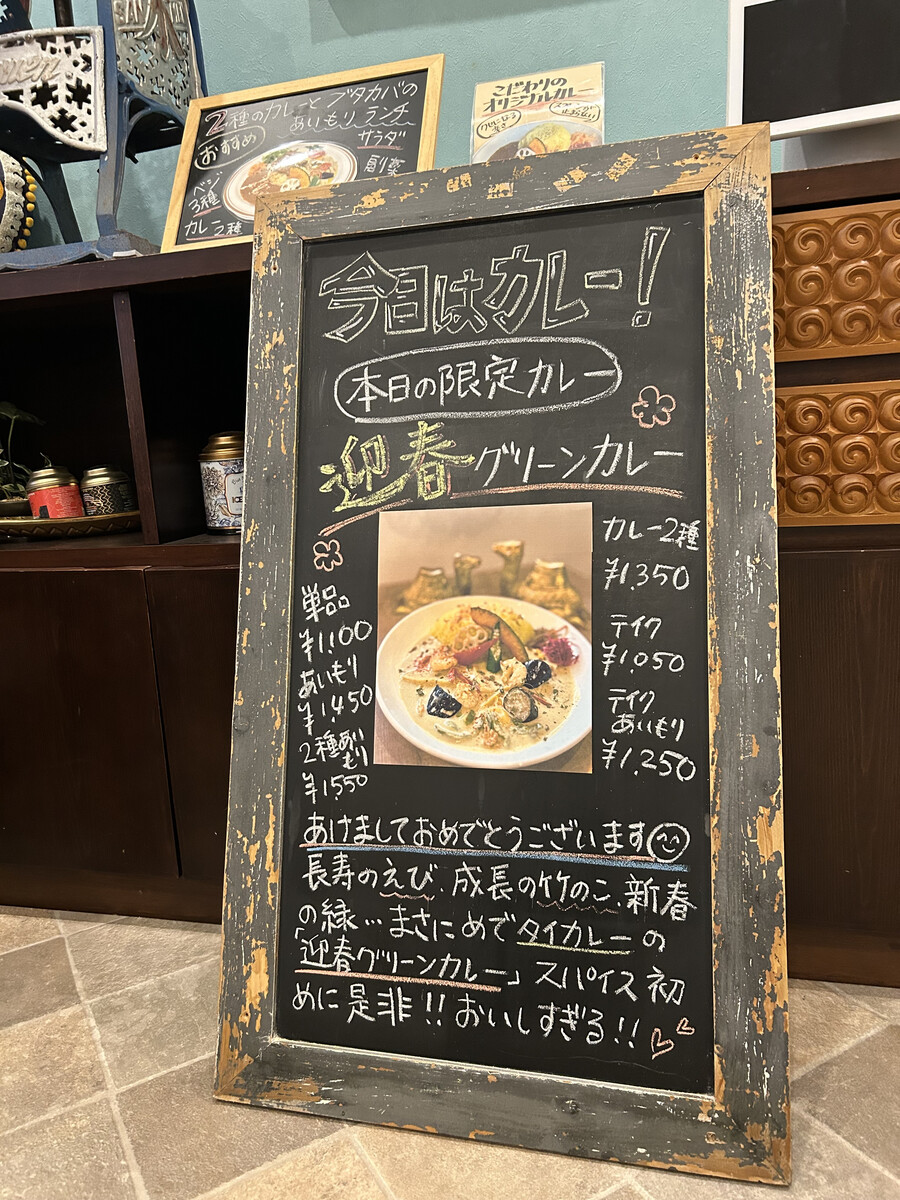 2種のカレーとブタカバの
あいもりランチ
おすすめ
サラダ
ベジ
3種
カレー2種
こだわりの
オリジナルカレー
今日はカレー!
本日の限定カレー
迎春グリーンカレー
単品
¥1,100
あいもり
¥1,450
2種あい
もり
¥1,550
カレー2種
¥1,350
テイク
¥1,050
テイク
あいもり
¥1,250
あけましておめでとうございます
長寿のえび、成長の竹のこ、新春
の緑…まさにめでタイカレーの
「迎春グリーンカレー」スパイス初
めに是非!!おいしすぎる!!